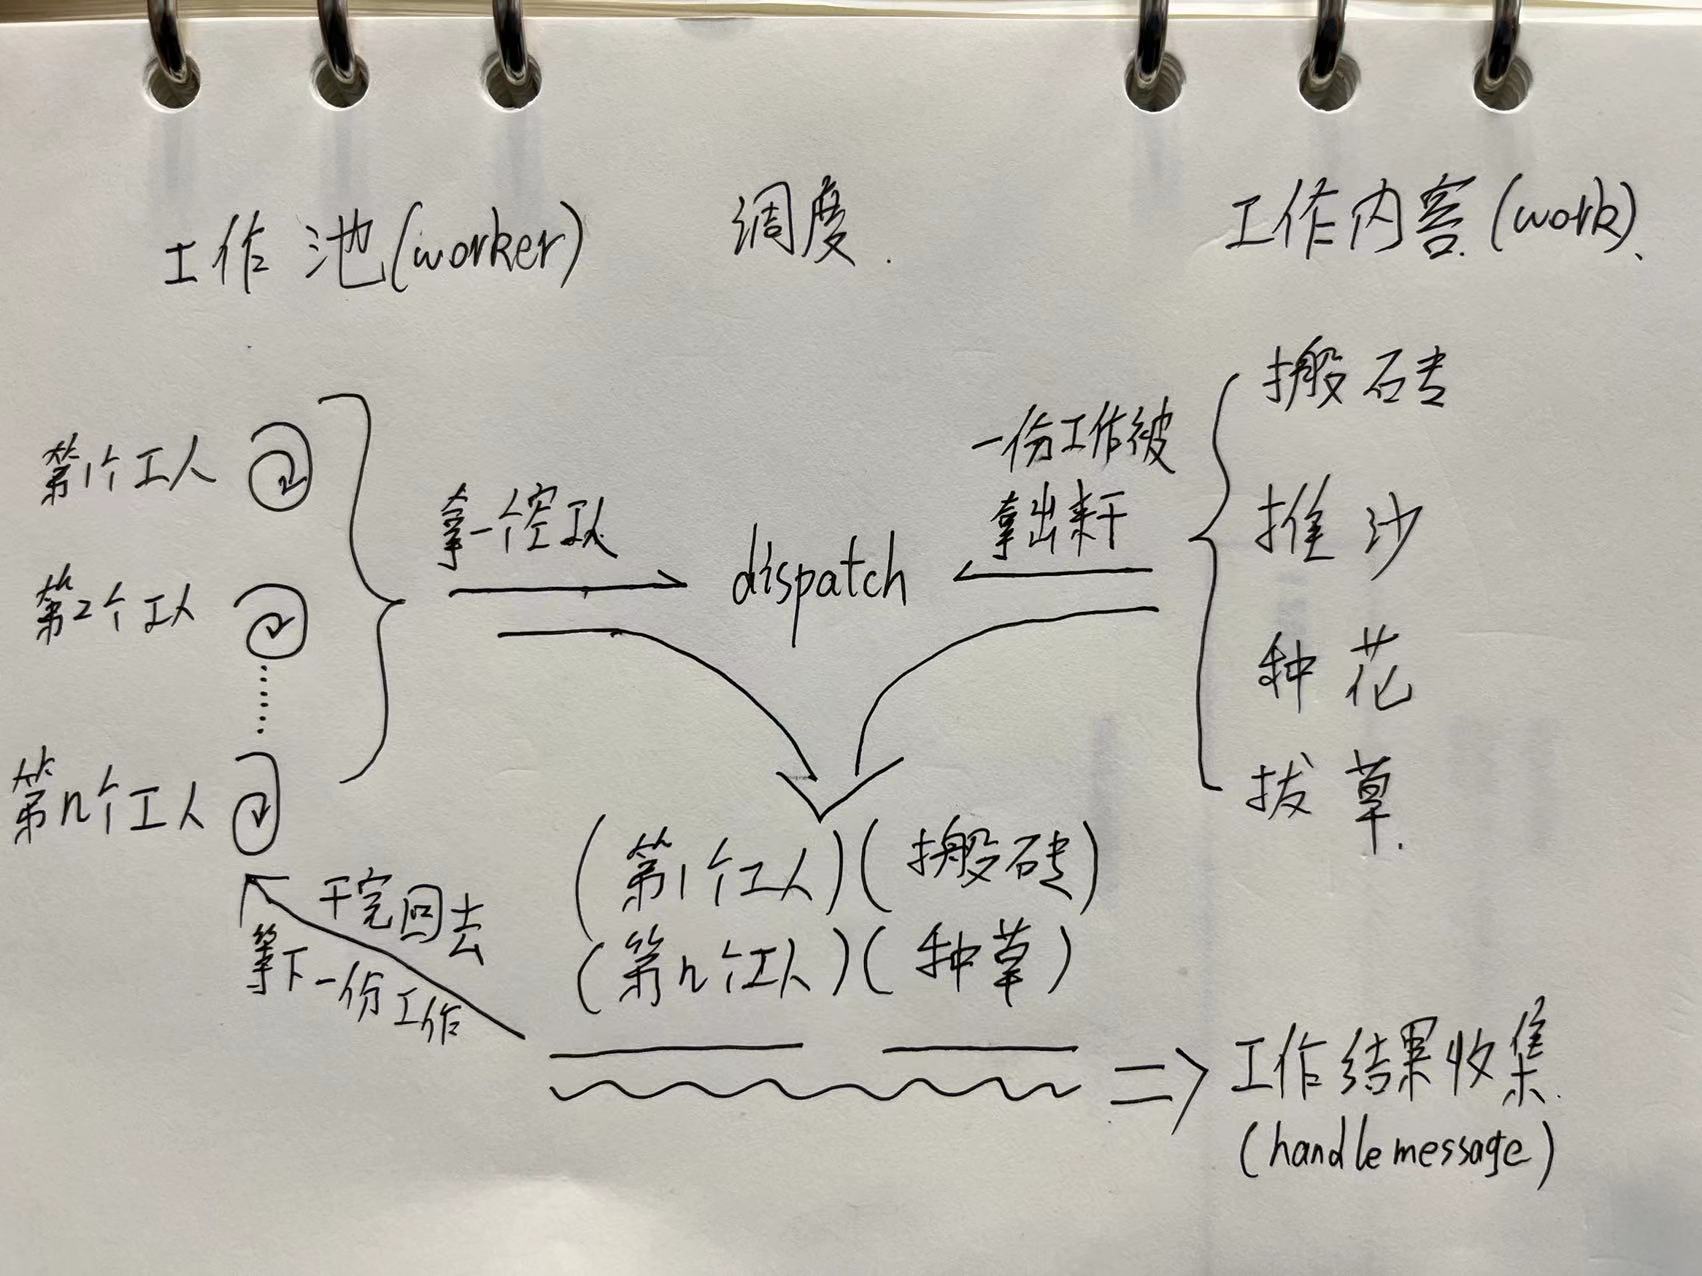 工作池(worker)
调度.
工作内容(work)、
第1个工人
第2个工人
......
第n个工人
拿一个空工人
dispatch
一份工作被
拿出来干
搬砖
推沙
种花
拔草.
(第1个工人)(搬砖)
(第n个工人)(种草)
干完回去
等下一份工作
工作结果收集.
(handlemessage)